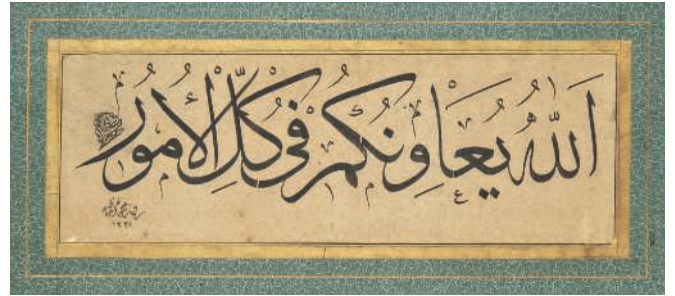 اَللّٰهُ يُعَاوِنُكُمْ فِى كُلِّ الْأُمُورْ